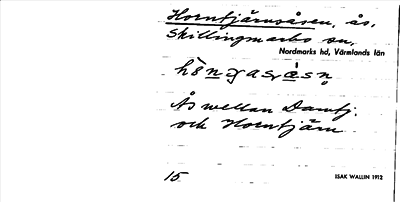 Horntjärnsåsen, ås,
Skillingmarks sn,
Nordmarks hd, Värmlands län
Ås mellan Damtj.
och Horntjärn
15
ISAK WALLIN 1912